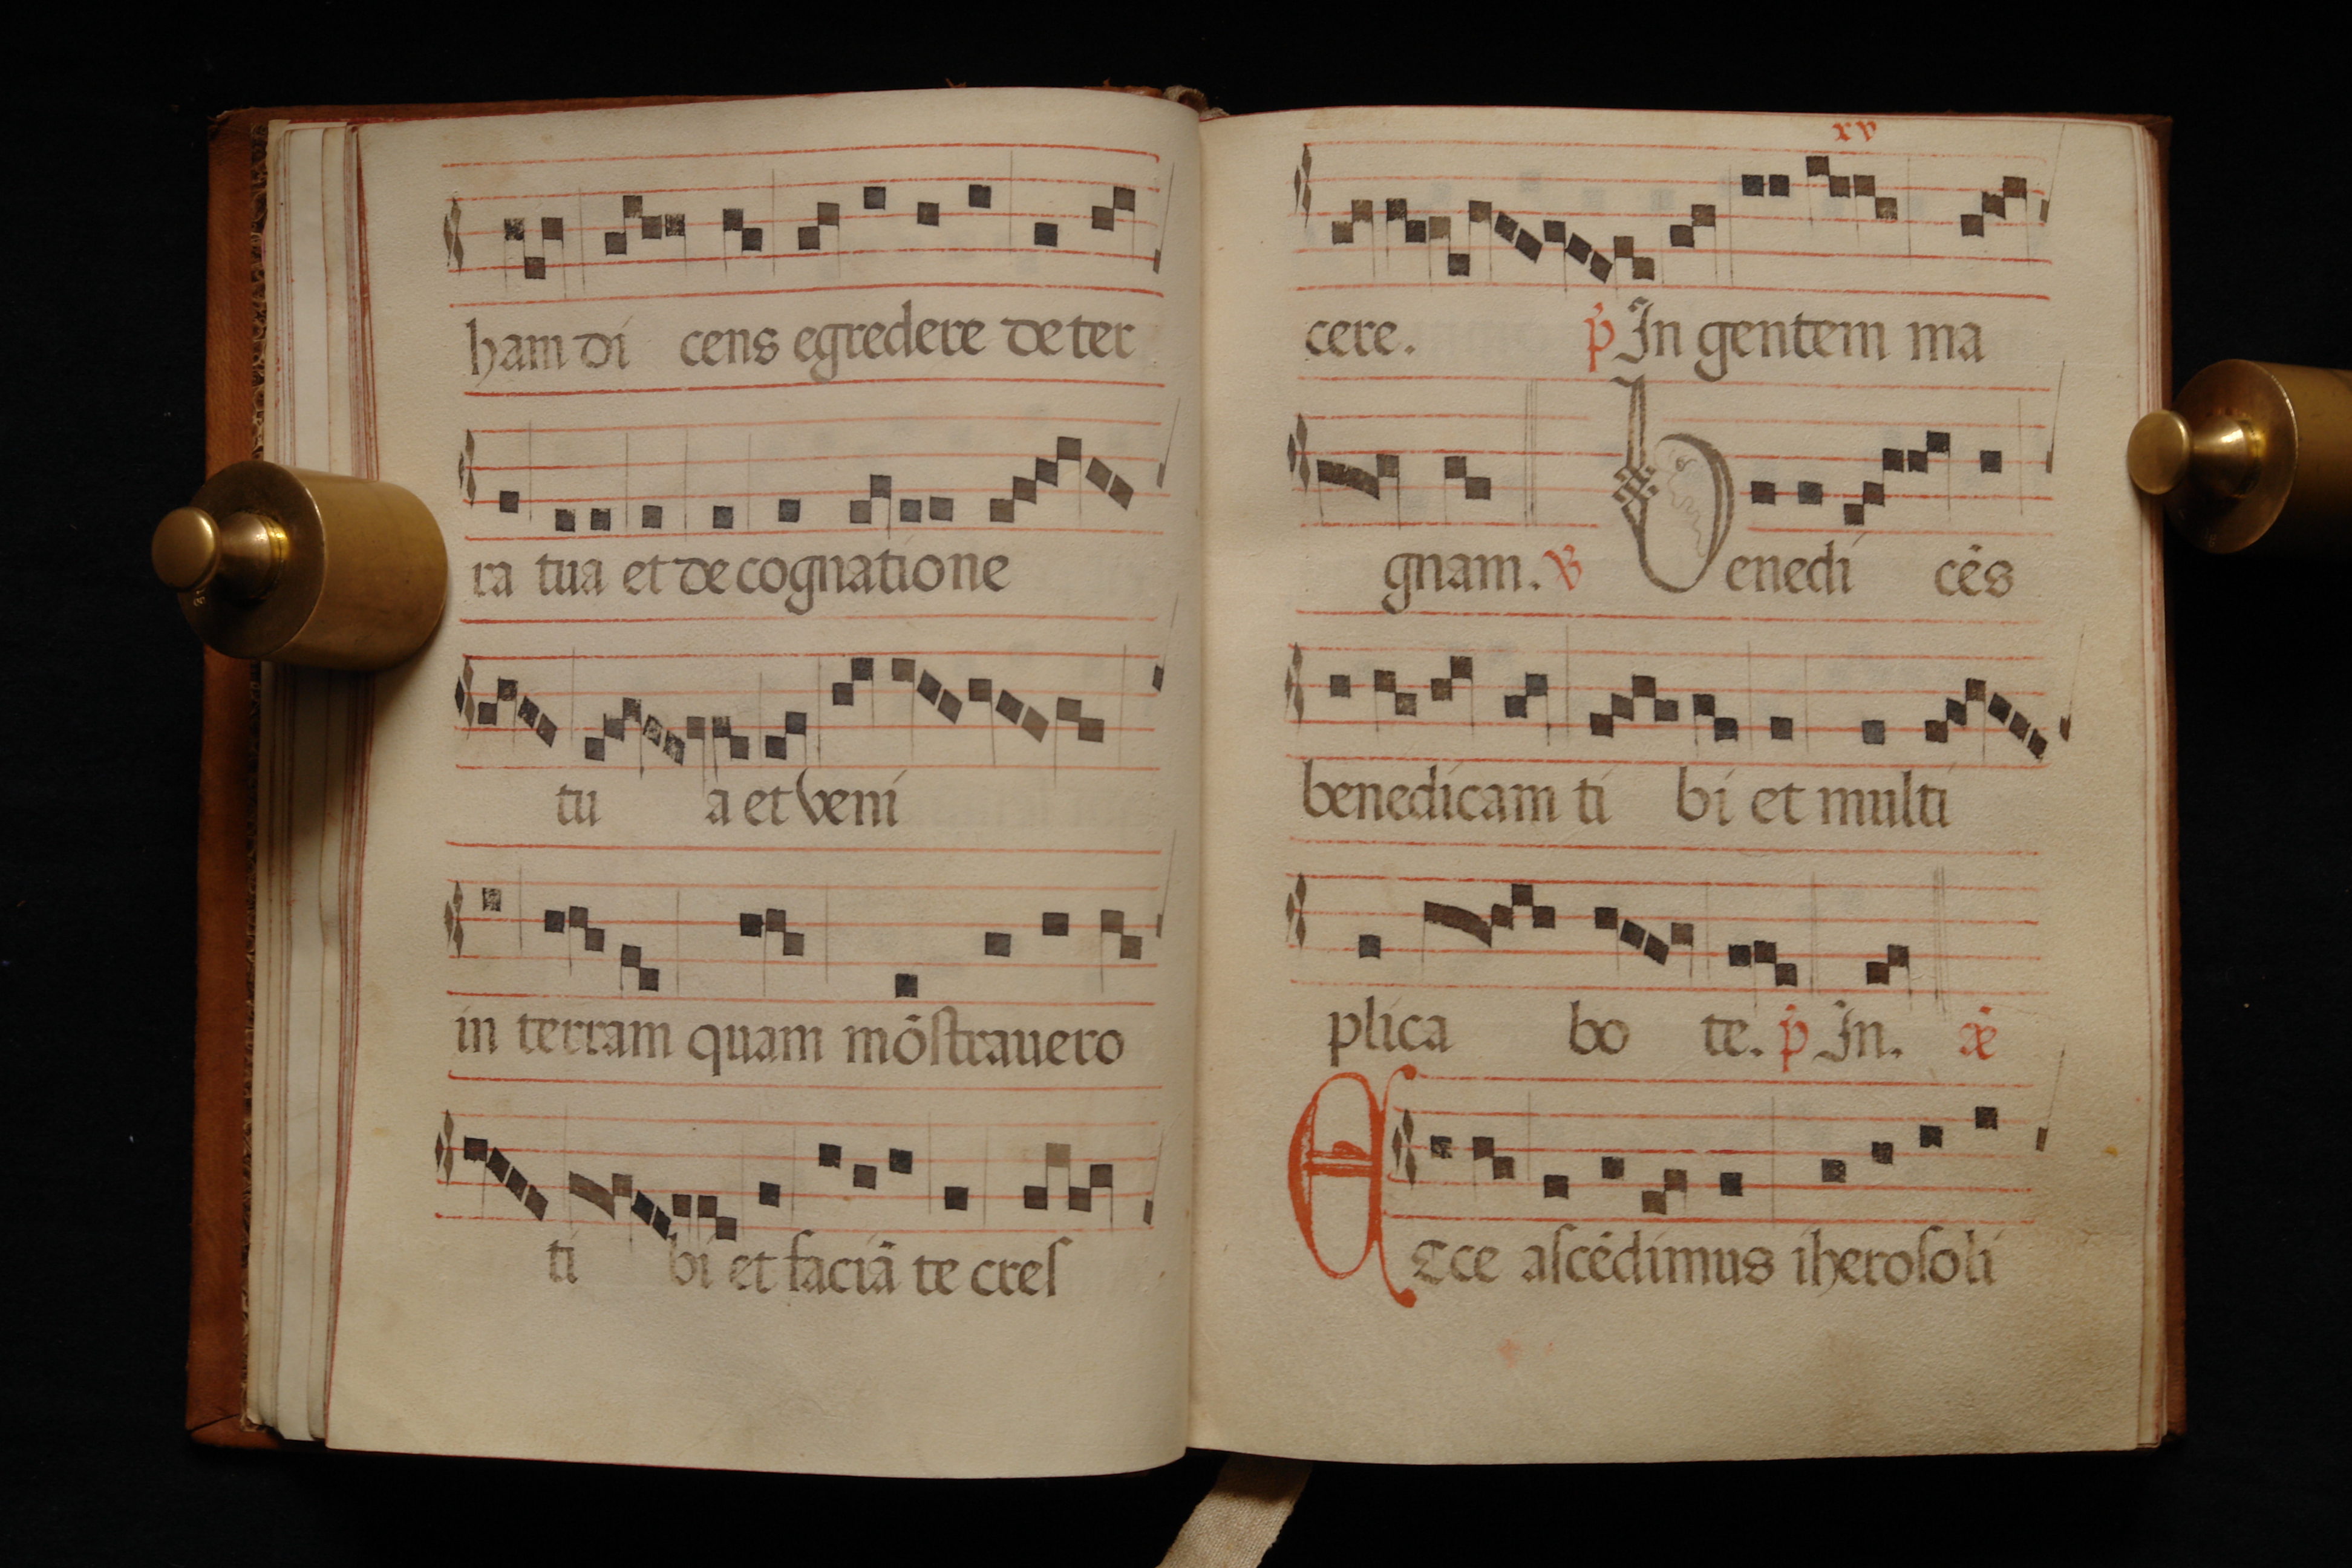 ham di cens egredere de ter
ra tua et de cognatione
tu a et veni
in terram quam mõstrauero
ti bi et faciã te creſ
xv
cere. p̃ In gentem ma
gnam. ℣ Benedi cẽs
benedicam ti bi et multi
plica bo te. p̃ In. 
Ecce aſcẽdimus iheroſoli